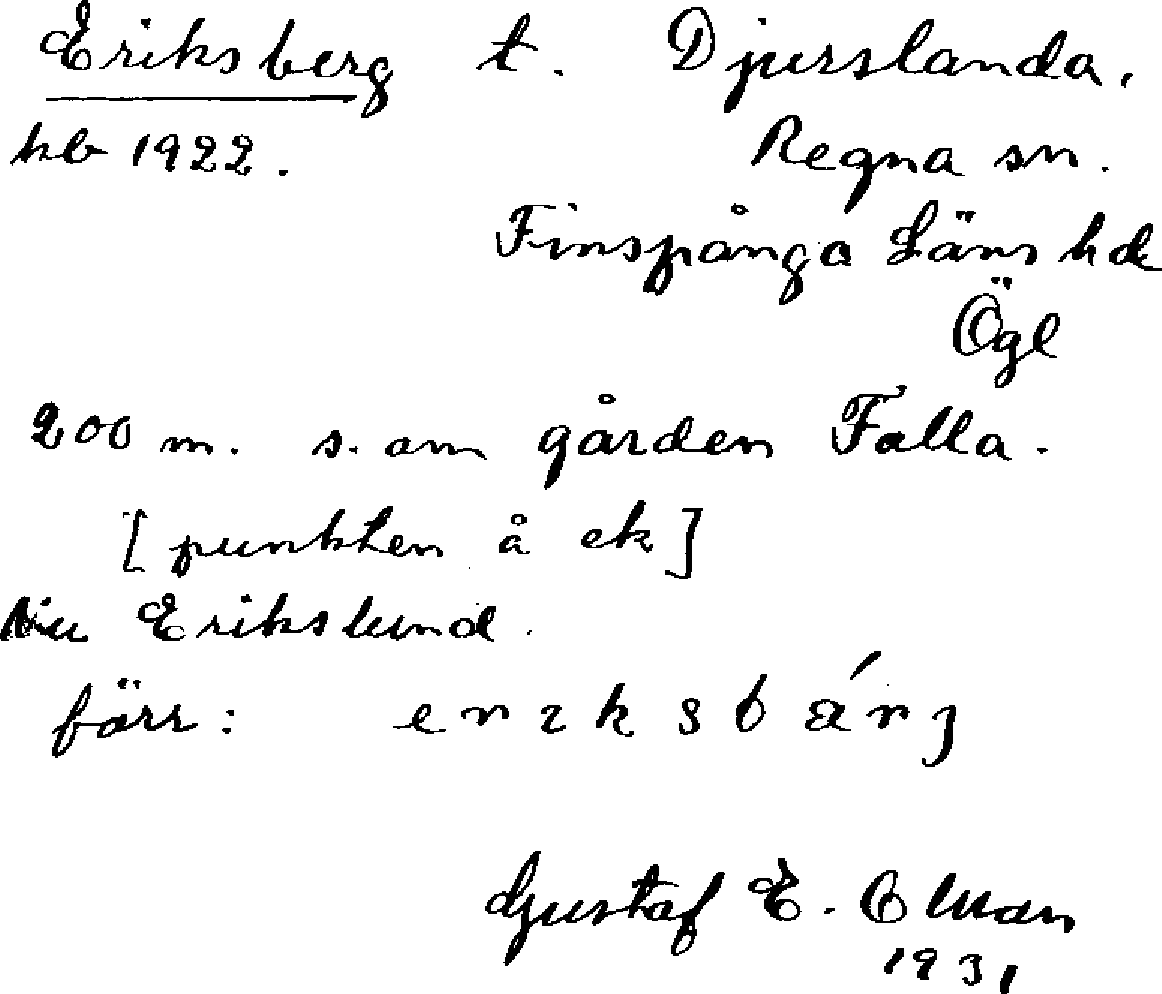 Eriksberg t. Djurslanda.
hb 1922. Regna sn.
Finspånga Läns hd
Ögl
200 m. s. om gården Falla.
[punkten å ek]
Nu Erikslund.
förr: erıksbárȷ
Gustaf E.
1931